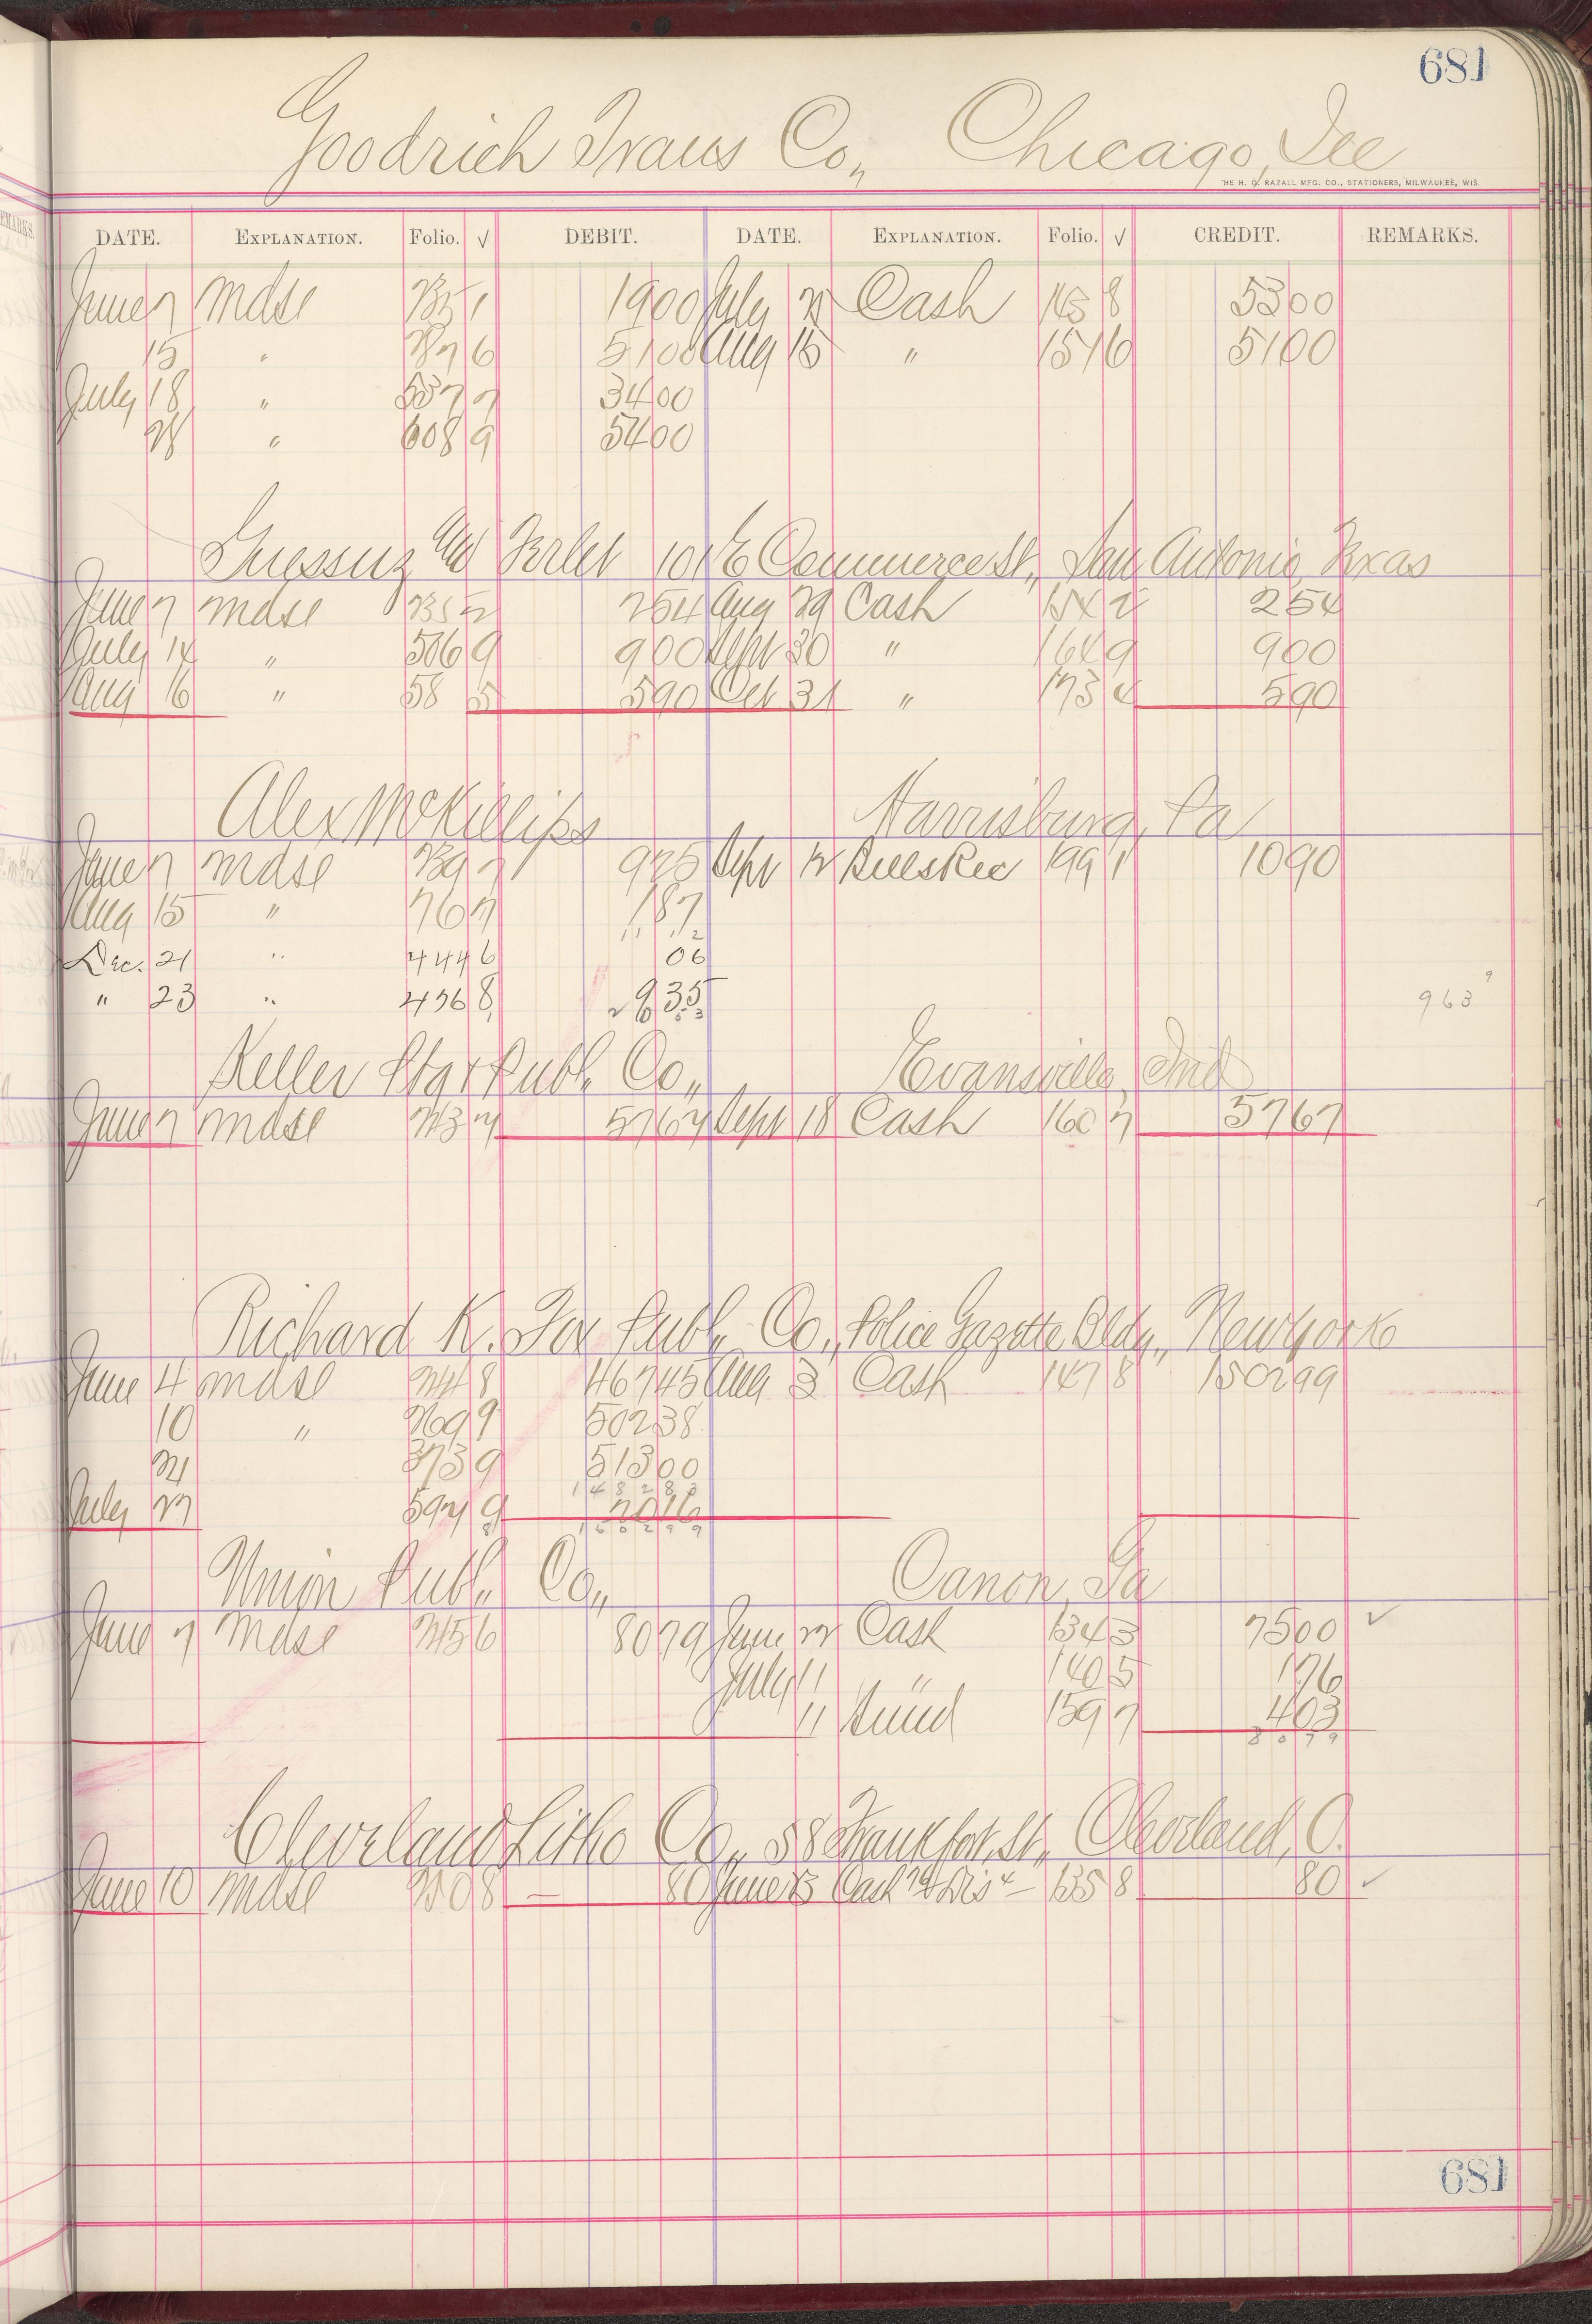 681
Goodrich Trans Co., Chicago, Ill
THE H. G. RAZALL MFG. CO., STATIONERS, MILWAUKEE, WIS.
DATE. EXPLANATION. Folio. √ DEBIT. DATE. EXPLANATION. Folio. √ CREDIT. REMARKS.
June 7 Mdse 2351 1900 July Cash 1458 5300
15 " 2876 5100 Aug 15 " 1516 5100
July 18 " 5377 3400
28 " 6089 5400
101 E Commerce St., San Antonio, Texas
June 7 Mdse 2352 254 Aug 29 Cash 254
July 14 " 5069 900 Sept 30 " 1649 900
Aug 16 " 58 5 590 Oct 31 " 1734 590
Alex McKillips Harrisburg, Pa
June 7 Mdse 2397 925 Sept 12 Bills Rec 1991 1090
Aug 15 " 767 187
Dec. 21 " 4446 06
" 23 " 4568 935
963
Keller Star Publ. Co., Evansville, Ind
June 7 Mdse 2437 5767 Sept 18 Cash 1607 5767
Richard K. Fox Publ. Co., Police Gazette Bldg., New York
June 4 Mdse 2448 46745 Aug 3 Cash 1478 150299
10 " 2699 50238
21 3739 51300
148283
July 27 5929 2016
150299
Union Publ. Co., Canon, Ga
June 7 Mdse 2456 8079 June 22 Cash 1343 7500 ✓
July 11 " 1405 176
11 1397 403
8079
Cleveland Litho Co., 58 Frankfort St., Cleveland, O.
June 10 Mdse 2508 — 80 June 25 Cash Dis — 1358 80 ✓
681